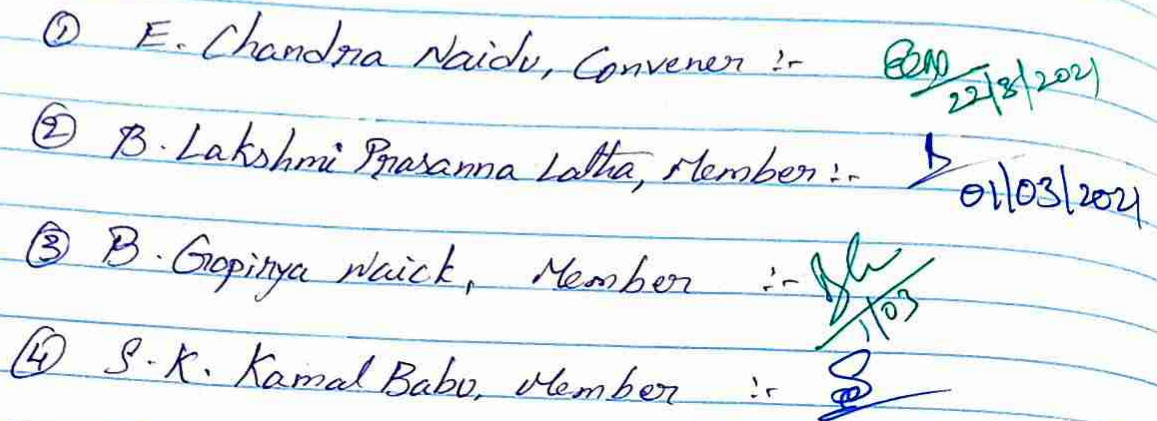 ① E. Chandra Naidu, Convener :- 22/8/2021
② B. Lakshmi Prasanna Latha, Member :- 01/03/2021
③ B. Gopinya Naick, Member :- 1/03
④ S.K. Kamal Babu, Member :-